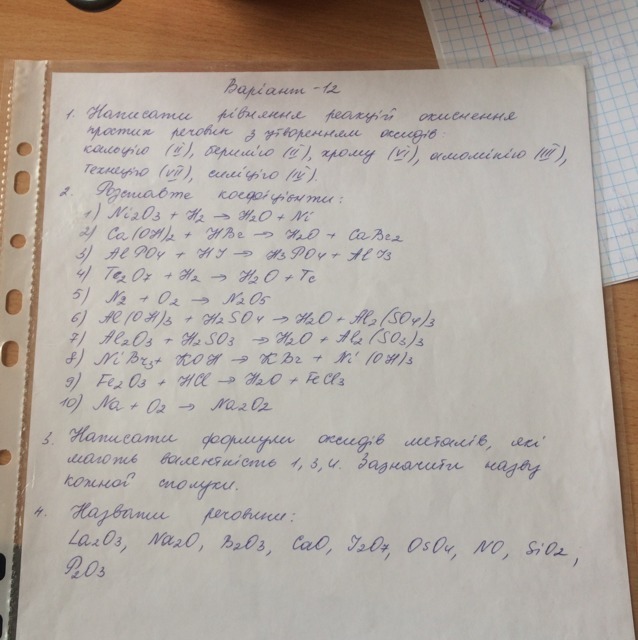 Варіант -12
1. Написати рівняння реакцій окиснення
простих речовин з утворенням оксидів:
кальцію (II), берилію (II), хрому (VI), алюмінію (III),
технецію (VII), силіцію (IV).
2. Розставте коефіцієнти:
1) Ni2O3 + H2 → H2O + Ni
2) Ca(OH)2 + HBr → H2O + CaBr2
3) AlPO4 + HJ → H3PO4 + AlJ3
4) Tc2O7 + H2 → H2O + Tc
5) N2 + O2 → N2O5
6) Al(OH)3 + H2SO4 → H2O + Al2(SO4)3
7) Al2O3 + H2SO3 → H2O + Al2(SO3)3
8) NiBr3 + KOH → KBr + Ni(OH)3
9) Fe2O3 + HCl → H2O + FeCl3
10) Na + O2 → Na2O2
3. Написати формули оксидів металів, які
мають валентність 1, 3, 4. Зазначити назву
кожної сполуки.
4. Назвати речовини:
La2O3, Na2O, B2O3, CaO, J2O7, OsO4, NO, SiO2,
P2O3